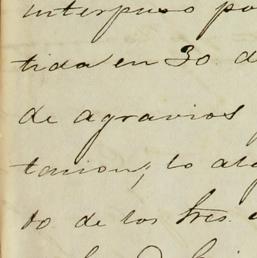 interpuso po
tida en 30 d
de agravios
tacion, lo al
to de los tres